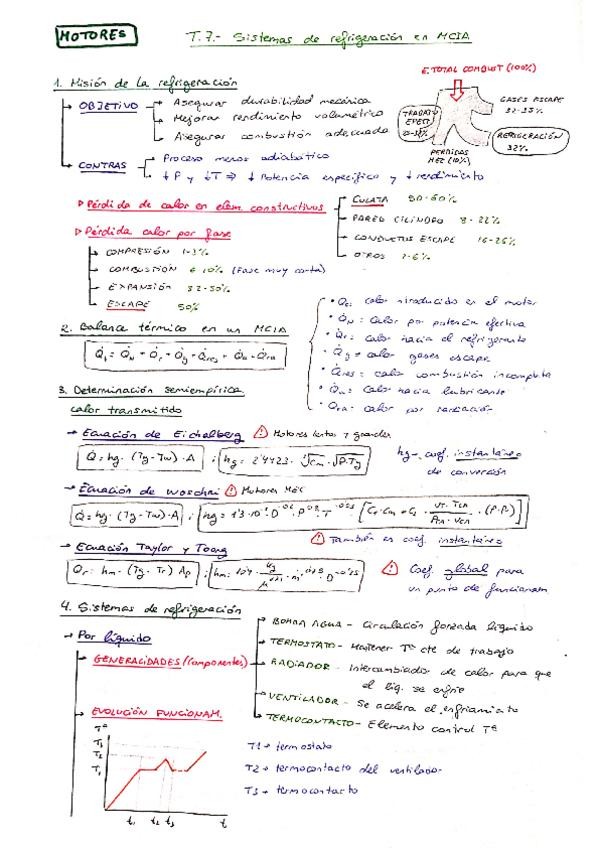 MOTORES
T.7.- Sistemas de refrigeración en MCIA
1. Misión de la refrigeración
OBJETIVO
Asegurar durabilidad mecánica
Mejorar rendimiento volumétrico
Asegurar combustión adecuada
CONTRAS
Proceso menos adiabático
↓P y ↓T ⇒ ↓ Potencia específica y ↓ rendimiento
E. TOTAL COMBUST (100%)
GASES ESCAPE
TRABAJO
EFECT.
REFRIGERACIÓN
32%
PERDIDAS
MEC (10%)
Pérdida de calor en elem. constructivos
CULATA 50-60%
PARED CILINDRO
CONDUCTOS ESCAPE
OTROS 2-6%
Pérdida calor por fase
COMPRESIÓN 1-3%
COMBUSTIÓN 6-10% (Fase muy corta)
EXPANSIÓN
ESCAPE 50%
2. Balance térmico en un MCIA
Q̇c: calor introducido en el motor
Q̇N: Calor por potencia efectiva
Q̇r: Calor hacia el refrigerante
Q̇g = calor gases escape
Q̇res = calor combustión incompleta
Calor hacia lubricante
Calor por radiación
3. Determinación semiempírica
calor transmitido
Ecuación de Eichelberg
Motores lentos y grandes
Q̇ = hg · (Tg - Tw) · A
hg = 2'4423 · ∛Cm · √P·Tg
hg → coef. instantáneo
de convección
Ecuación de Woschni
Motores MEC
Q̇ = hg · (Tg - Tw) · A
También es coef. instantáneo
Ecuación Taylor y Toong
Coef. global para
un punto de funcionam.
4. Sistemas de refrigeración
Por líquido
GENERALIDADES (Componentes)
BOMBA AGUA - Circulación forzada líquido
TERMOSTATO - Mantener Tª cte de trabajo
RADIADOR - Intercambiador de calor para que
el liq. se enfríe
VENTILADOR - Se acelera el enfriamiento
TERMOCONTACTO - Elemento control Tª
EVOLUCIÓN FUNCIONAM.
Tª
T3
T2
T1
t1 t2 t3 t
T1 → termostato
T2 → termocontacto del ventilador
T3 → termocontacto